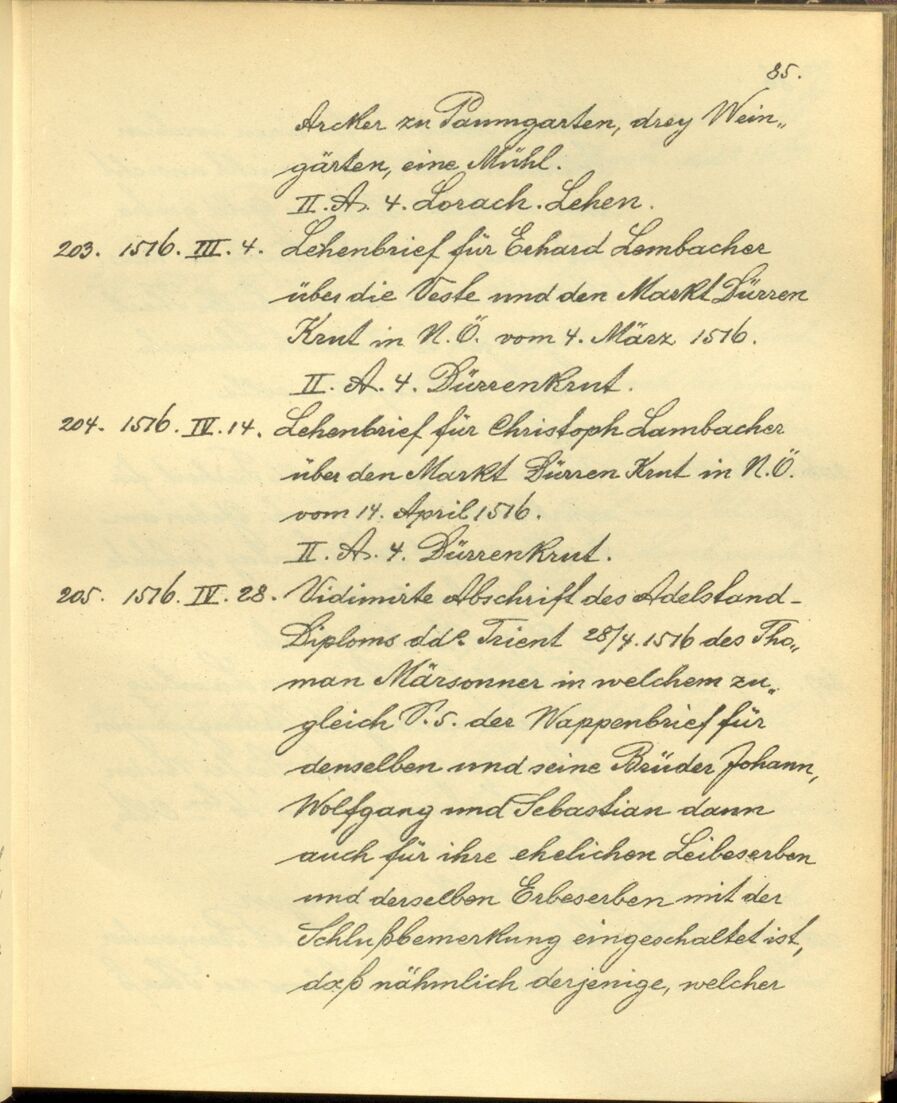 85.
Arcker zu Paumgarten, drey Wein„
gärten, eine Mühl.
II. A. 4. Lorach. Lehen.
203. 1516. III. 4. Lehenbrief für Erhard Lembacher
über die Veste und den Markt Dürren
Krut in N.Ö. vom 4. März 1516.
II. A. 4. Dürrenkrut.
204. 1516. IV. 14. Lehenbrief für Christoph Lambacher
über den Markt Dürren Krut in N.Ö.
vom 14. April 1516.
II. A. 4. Dürrenkrut.
205. 1516. IV. 28. Vidimirte Abschrift des Adelstand-
Diploms dd° Trient 28/4. 1516 des Tho„
man Märsonner in welchem zu„
gleich S. 5. der Wappenbrief für
denselben und seine Brüder Johann,
Wolfgang und Sebastian dann
auch für ihre ehelichen Leibeserben
und derselben Erbeserben mit der
Schlußbemerkung eingeschaltet ist,
daß nähmlich derjenige, welcher